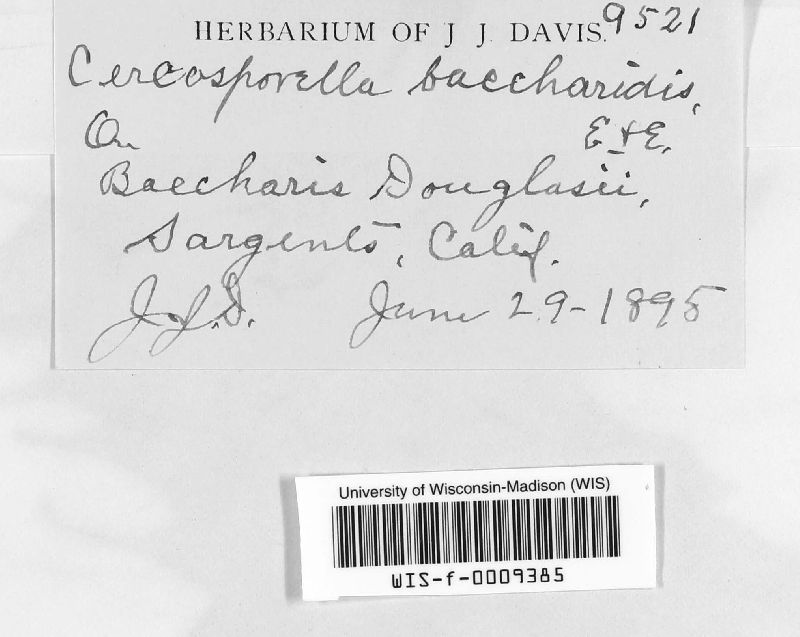 HERBARIUM OF J J. DAVIS. 9521
Cercosporella baccharidis,
On E & E.
Baccharis Douglasii,
Sargents, Calif.
J.J.D. June 29-1895
University of Wisconsin-Madison (WIS)
WIS-f-0009385